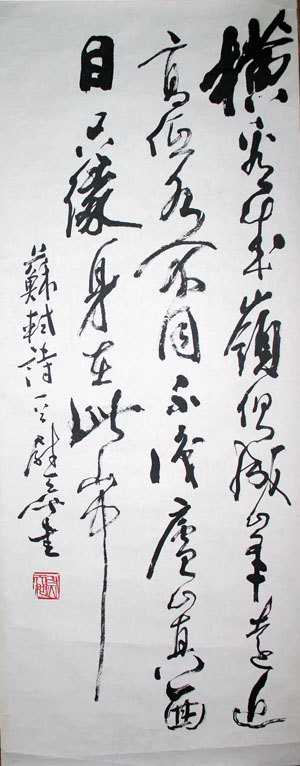 橫看成嶺側成峯遠近
高低各不同不識廬山真面
目只緣身在此山中
蘇軾詩一首尉天池書